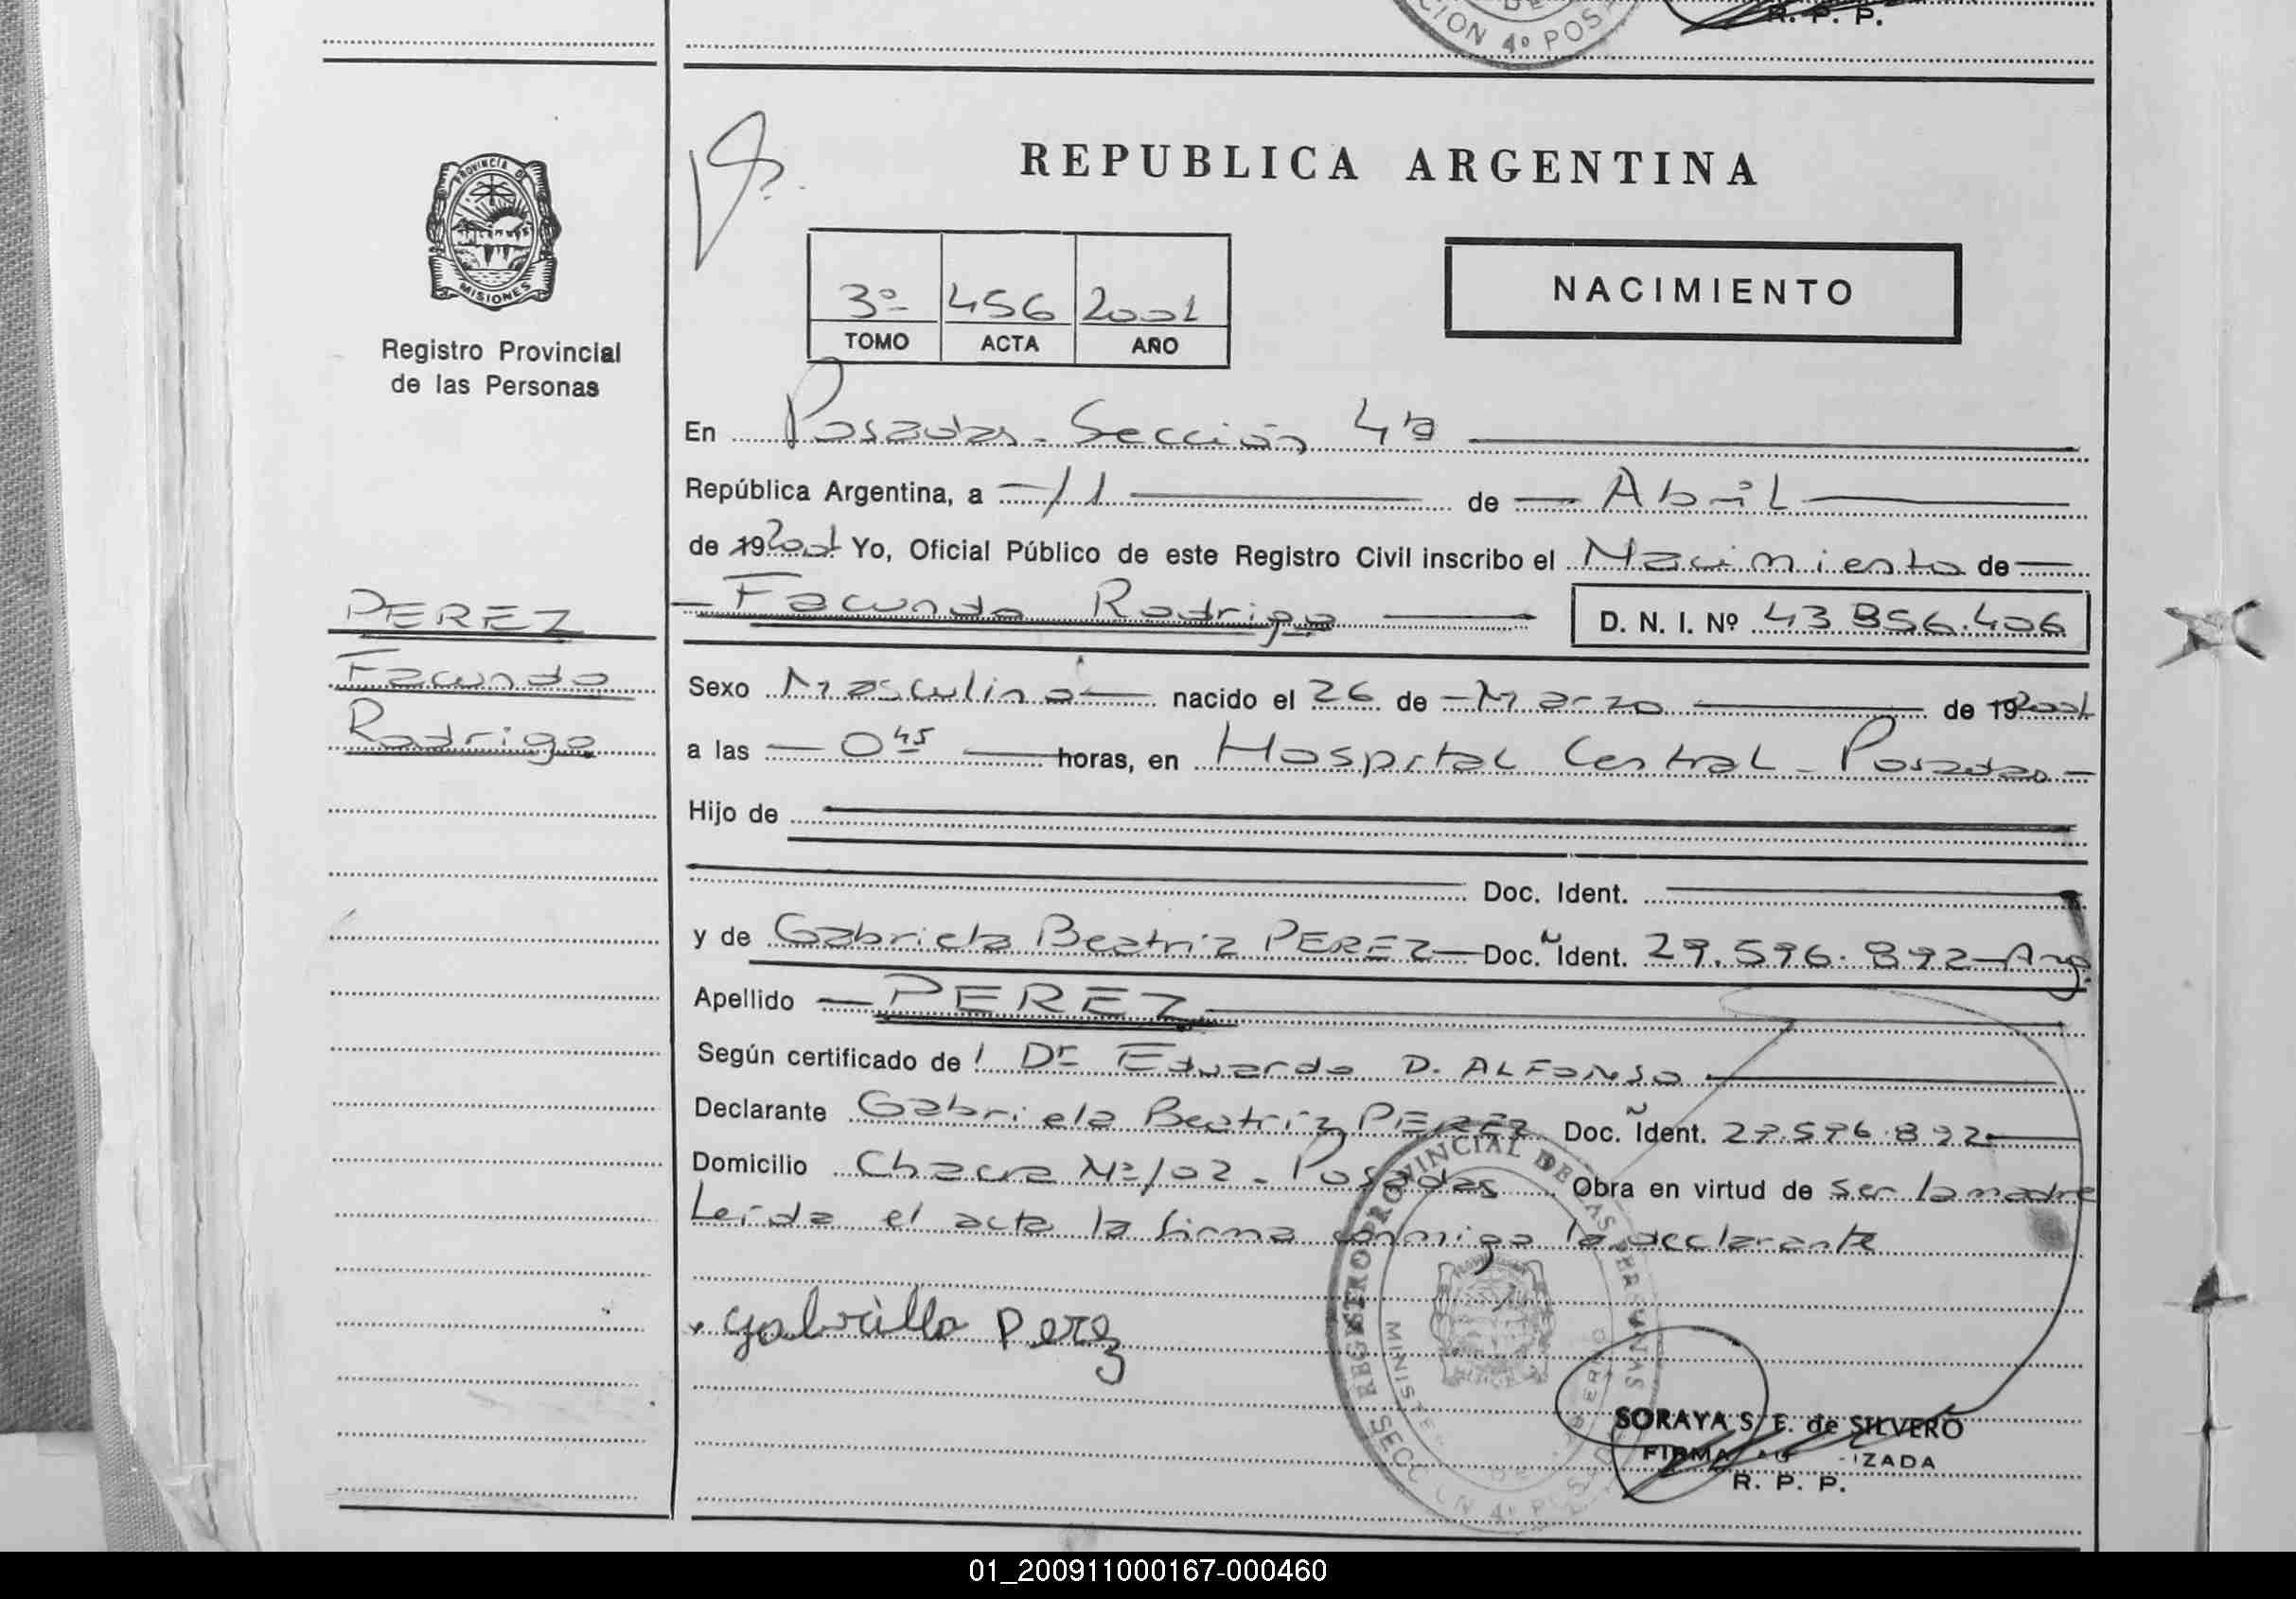 CION 4º POS
R. P. P.
PROVINCIA DE
MISIONES
Registro Provincial
de las Personas
REPUBLICA ARGENTINA
3º 456 2001
TOMO ACTA AÑO
NACIMIENTO
En Posadas - Sección 4ta
República Argentina, a 11 de Abril
de 192001 Yo, Oficial Público de este Registro Civil inscribo el Nacimiento de
PEREZ
Facundo
Rodrigo
Facundo Rodrigo D. N. I. Nº 43 856.406
Sexo Masculino nacido el 26 de Marzo de 192001
a las 0 45 horas, en Hospital Central - Posadas
Hijo de
Doc. Ident.
y de Gabriela Beatriz PEREZ Doc. Ident. 29.596.892 - Arg.
Apellido PEREZ
Según certificado de l Dr Eduardo D. ALFONSO
Declarante Gabriela Beatriz PEREZ Doc. Ident. 29.596.892
Domicilio Chacra Nº 102 - Posadas Obra en virtud de ser la madre
Leída el acta la firma conmigo la declarante
gabriella perez
REGISTRO PROVINCIAL DE LAS PERSONAS
SORAYA S. E. de SILVERO
R. P. P.
01_200911000167-000460